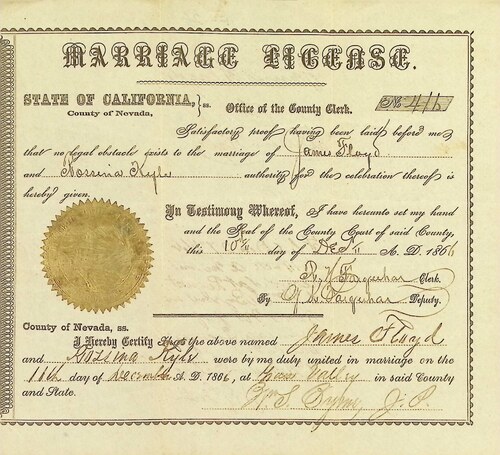 MARRIAGE LICENSE.
STATE OF CALIFORNIA, } ss. Office of the County Clerk. No. 416
County of Nevada,
Satisfactory proof having been laid before me
that no legal obstacle exists to the marriage of James Floyd
and Rossina Kyle authority for the celebration thereof is
hereby given.
In Testimony Whereof, I have hereunto set my hand
and the Seal of the County Court of said County,
this 10th day of A. D. 1866
R. H. Farquhar Clerk.
By Farquhar Deputy.
County of Nevada, ss.
I Hereby Certify that the above named James Floyd
and Rossina Kyle were by me duly united in marriage on the
day of December A. D. 1866, at Grass Valley in said County
and State.
Wm S J. P.